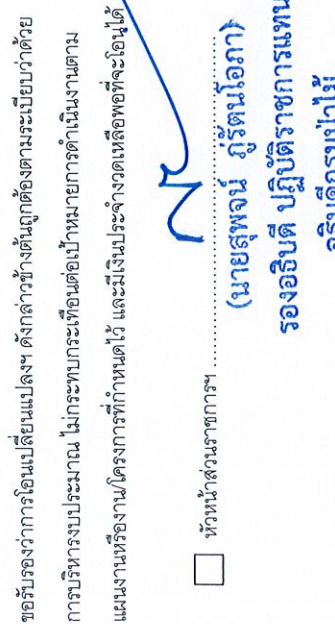 ขอรับรองว่าการโอนเปลี่ยนแปลงฯ ดังกล่าวข้างต้นถูกต้องตามระเบียบว่าด้วย
การบริหารงบประมาณ ไม่กระทบกระเทือนต่อเป้าหมายการดำเนินงานตาม
แผนงานหรืองาน/โครงการที่กำหนดไว้ และมีเงินประจำงวดเหลือพอที่จะโอนได้
หัวหน้าส่วนราชการฯ
(นายสุพจน์ ภู่รัตนโอภา)
รองอธิบดี ปฏิบัติราชการแทน
อธิบดีกรมป่าไม้